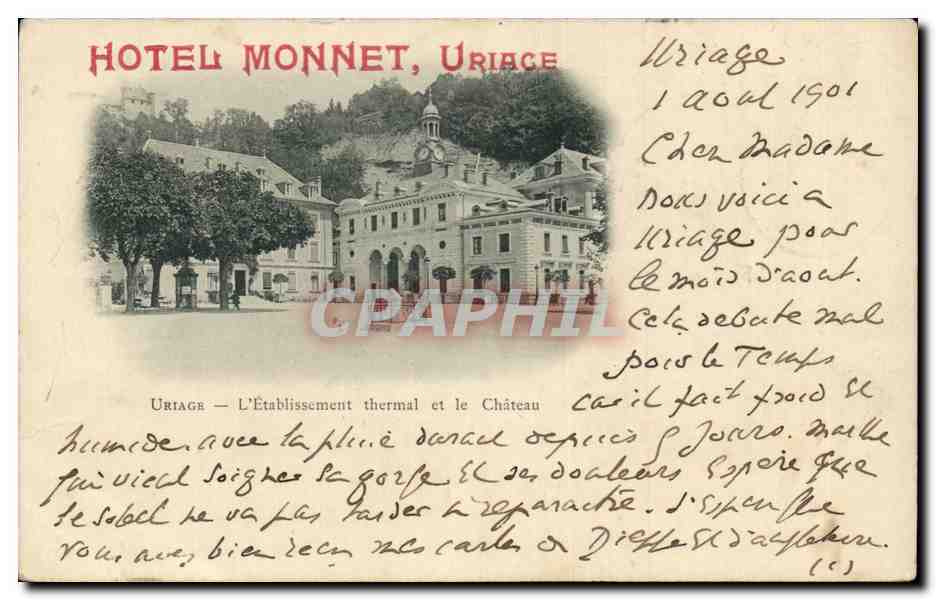 HOTEL MONNET, URIAGE
Uriage
1 aout 1901
Cher Madame
nous voici a
Uriage pour
le mois d'aout.
Cela debute mal
pour le Temps
car il fait froid et
CPAPHIL
URIAGE — L'Établissement thermal et le Château
humide. avec la pluie durant depuis 8 jours. Marthe
qui vient soigner sa gorge et ses douleurs espère que
le soleil ne va pas tarder à reparaitre. J'espère que
vous avez bien recu mes cartes de Dieppe et d'angleterre.